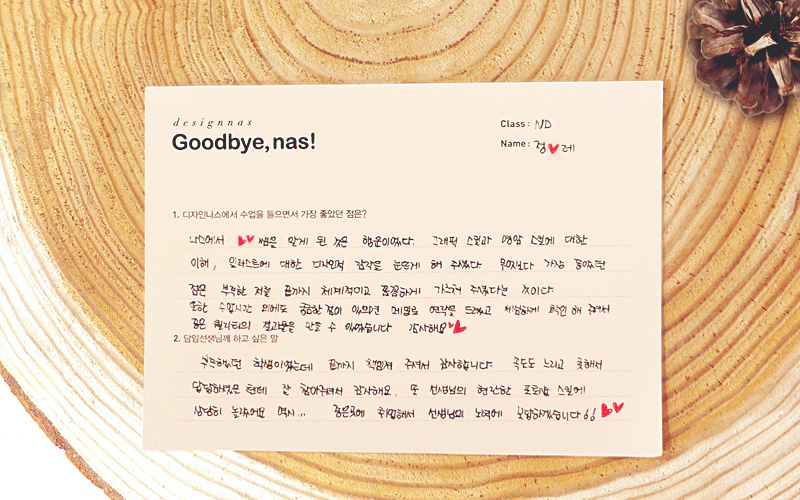 designnas
Goodbye, nas!
Class : ND
Name : 정♥레
1. 디자인나스에서 수업을 들으면서 가장 좋았던 점은?
나스에서 ♥♥쌤을 알게 된 것은 행운이었다. 그래픽 스킬과 명암 스킬에 대한
이해, 일러스트에 대한 디자인적 감각을 눈뜨게 해 주셨다 무엇보다 가장 좋았던
점은 부족한 저를 끝까지 체계적이고 꼼꼼하게 가르쳐 주셨다는 것이다
또한 수업시간 외에도 궁금한 점이 있으면 메일로 연락을 드리고 세심하게 확인 해 주셔서
좋은 퀄리티의 결과물을 만들 수 있었습니다 감사해요♥
2. 담임선생님께 하고 싶은 말
부족했던 학생이었는데 끝까지 책임져 주셔서 감사합니다. 속도도 느리고 못해서
답답하셨을 텐데 잘 참아주셔서 감사해요. 또 선생님의 현란한 포토샵 스킬에
상당히 놀랐어요 역시... 좋은곳에 취업해서 선생님의 노력에 보답하겠습니다!! ♥♥